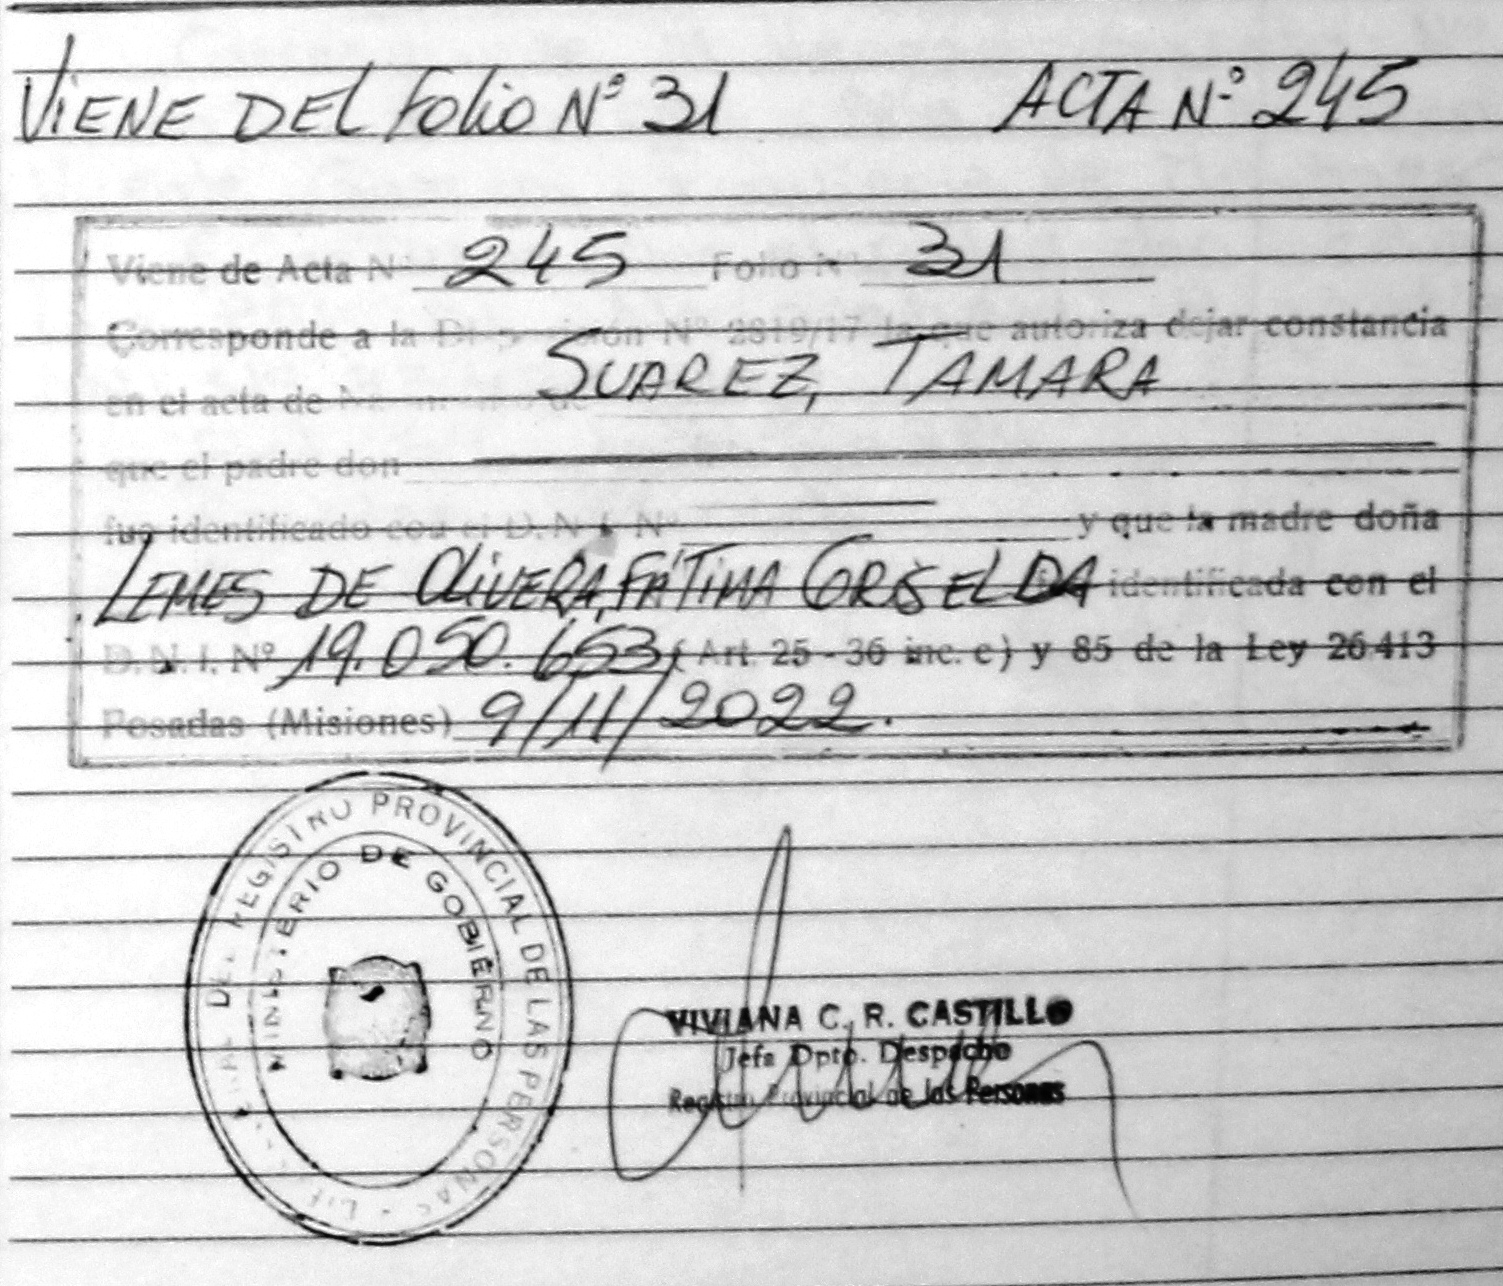 VIENE DEL FOLIO Nº 31 ACTA Nº 245
Viene de Acta Nº 245 Folio Nº 31
Corresponde a la Nº 2819/17 la que autoriza dejar constancia
SUAREZ, TAMARA
en el acta de
que el padre don
fue identificado con el D.N.I. Nº y que la madre doña
LEMES DE OLIVERA, FÁTIMA GRISELDA identificada con el
D.N.I. Nº 19.050.653, (Art. 25 - 36 inc. c) y 85 de la Ley 26413
Posadas (Misiones) 9/11/2022.
DEL REGISTRO PROVINCIAL DE LAS PERSONAS
MINISTERIO DE GOBIERNO
VIVIANA C. R. CASTILLO
Jefa Dpto. Despacho
Registro Provincial de las Personas